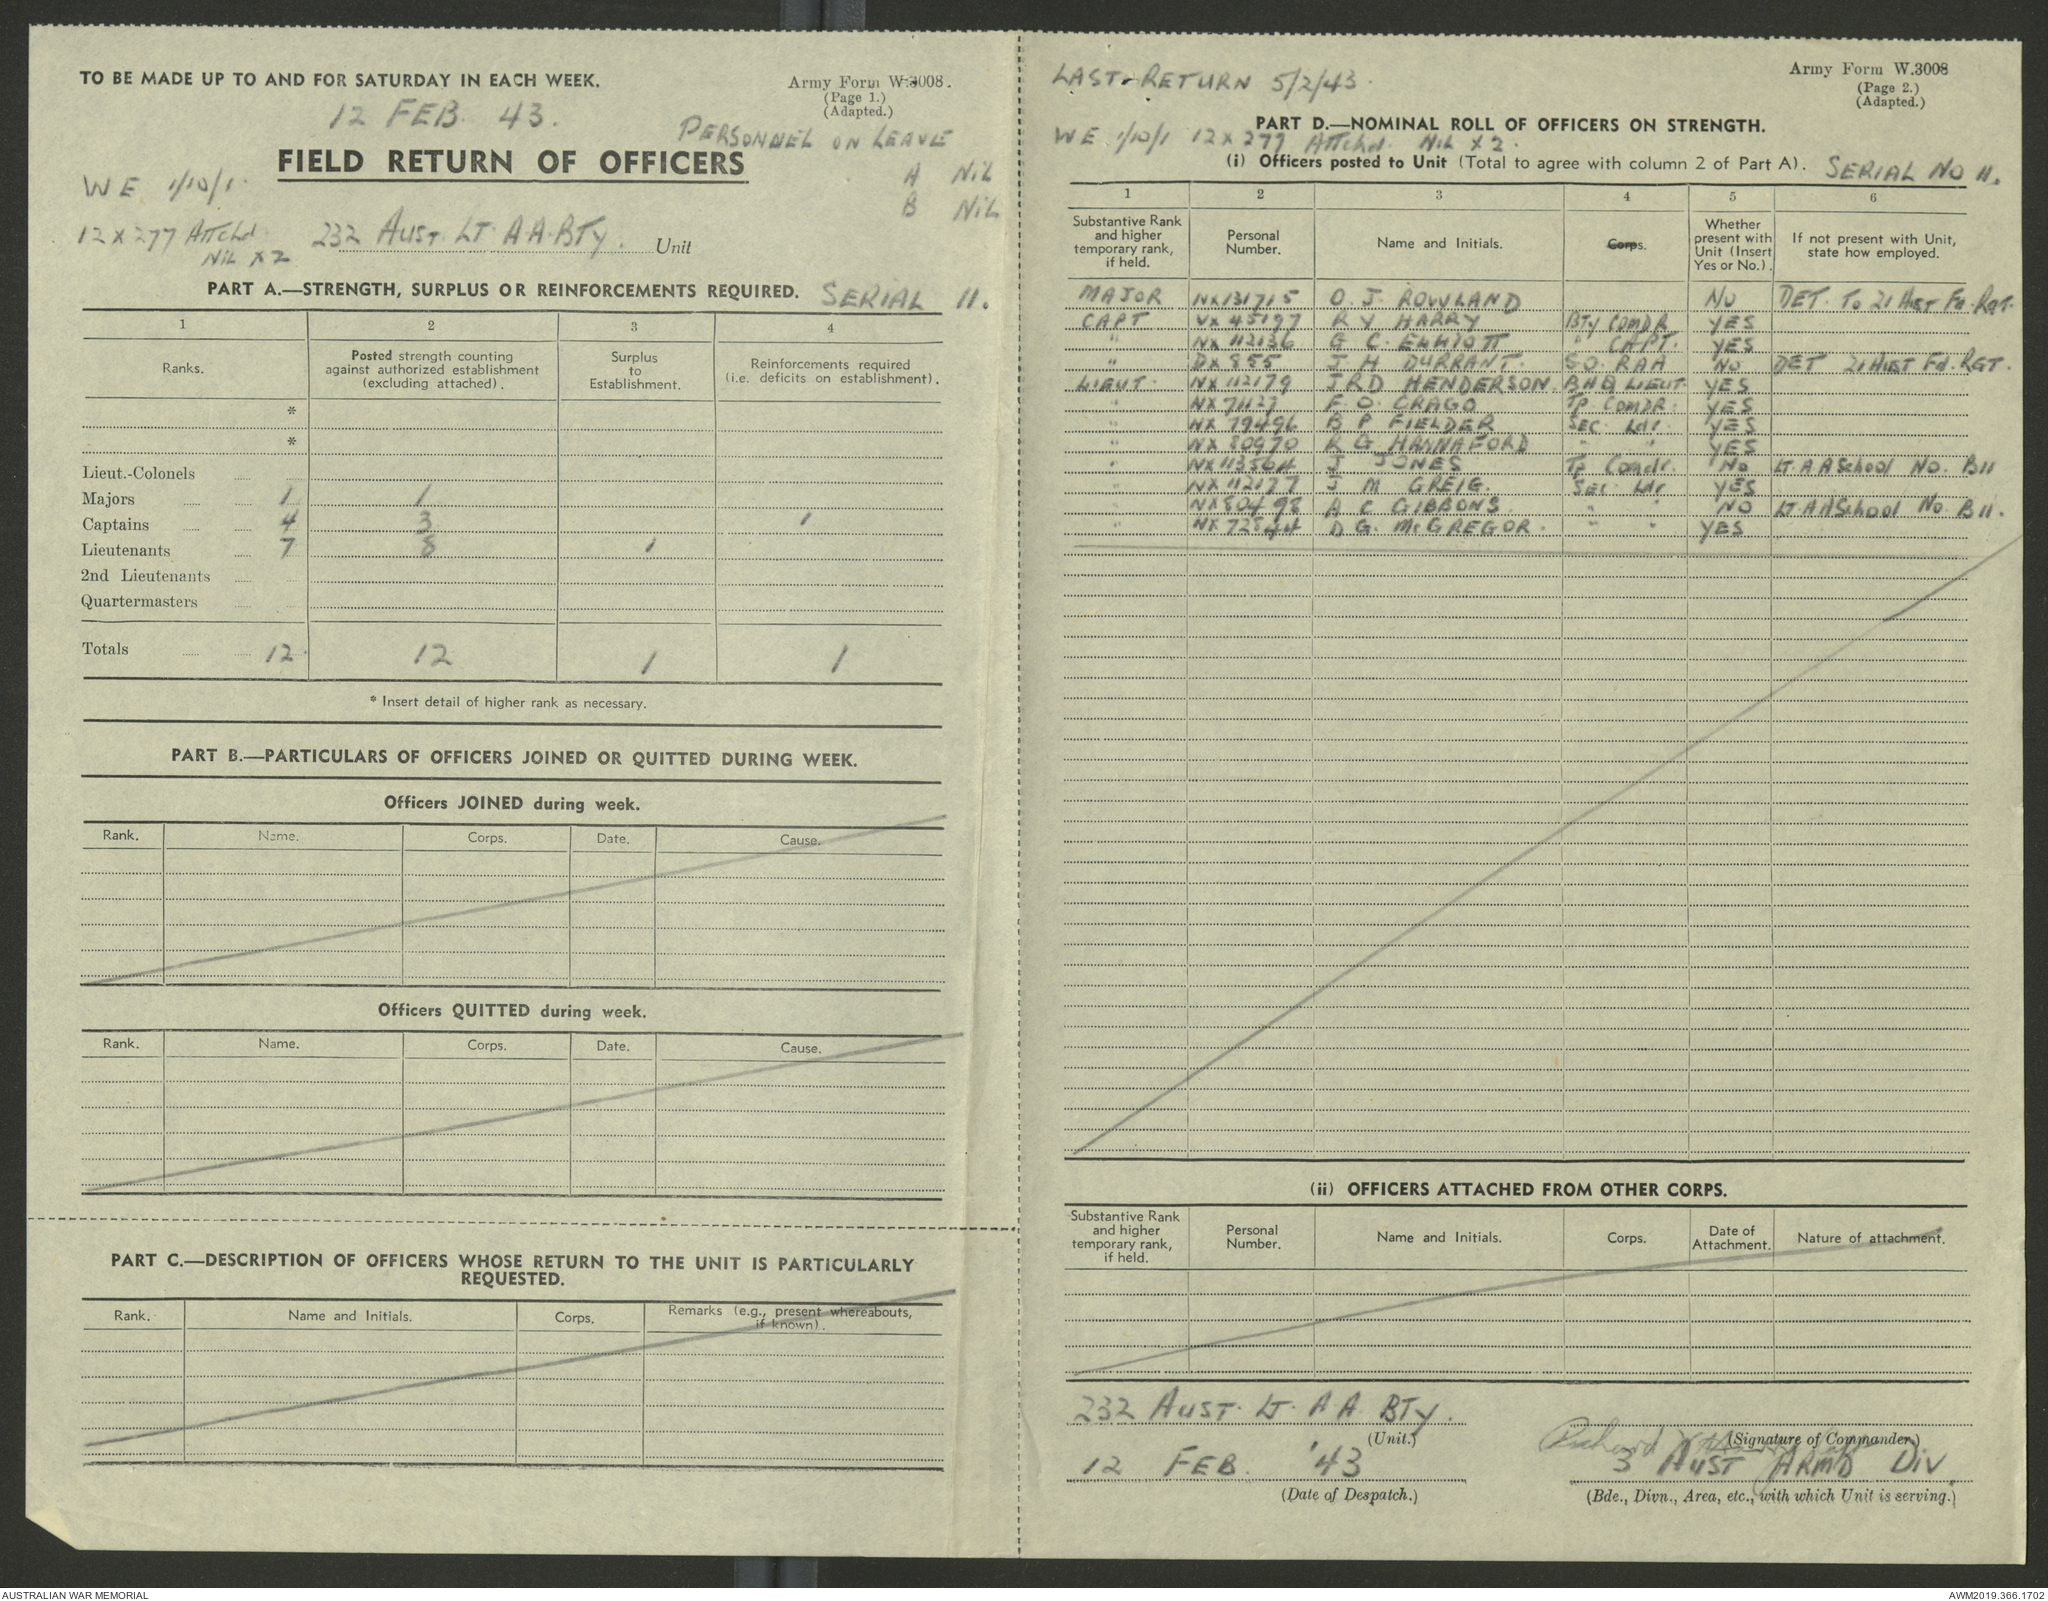 TO BE MADE UP TO AND FOR SATURDAY IN EACH WEEK.
Army Form W.3008.
(Page 1.)
(Adapted.)
12 FEB. 43.
PERSONNEL ON LEAVE
A NIL
B NIL
FIELD RETURN OF OFFICERS
WE 1/10/1.
12 x 277 Attchd
NIL x 2
232 AUST. LT. A A. BTY. Unit
PART A.—STRENGTH, SURPLUS OR REINFORCEMENTS REQUIRED. SERIAL 11.
1 2 3 4
Ranks. Posted strength counting against authorized establishment (excluding attached). Surplus to Establishment. Reinforcements required (i.e. deficits on establishment).
*
*
Lieut.-Colonels
Majors 1 1
Captains 4 3 1
Lieutenants 7 8 1
2nd Lieutenants
Quartermasters
Totals 12. 12 1 1
* Insert detail of higher rank as necessary.
PART B.—PARTICULARS OF OFFICERS JOINED OR QUITTED DURING WEEK.
Officers JOINED during week.
Rank. Name. Corps. Date. Cause.
Officers QUITTED during week.
Rank. Name. Corps. Date. Cause.
PART C.—DESCRIPTION OF OFFICERS WHOSE RETURN TO THE UNIT IS PARTICULARLY
REQUESTED.
Rank. Name and Initials. Corps. Remarks (e.g., present whereabouts, if known).
LAST RETURN 5/2/43.
Army Form W.3008
(Page 2.)
(Adapted.)
PART D.—NOMINAL ROLL OF OFFICERS ON STRENGTH.
WE 1/10/1 12 x 277 Attchd. NIL x 2.
(i) Officers posted to Unit (Total to agree with column 2 of Part A). SERIAL NO 11.
1 2 3 4 5 6
Substantive Rank and higher temporary rank, if held. Personal Number. Name and Initials. Corps. Whether present with Unit (Insert Yes or No.). If not present with Unit, state how employed.
MAJOR NX131715 O. J. ROWLAND NO DET. TO 21 AUST Fd. Rgt.
CAPT VX 45197 R Y HARRY BTY COMDR YES
" NX 112136 G C. ELLIOTT " CAPT. YES
" DX 855 J H DURRANT. S.O. RAA NO DET 21 AUST Fd. RGT.
LIEUT. NX 112179 J.R.D HENDERSON. BHQ LIEUT. YES
" NX 71127 F. O. CRAGO Tp COMDR. YES
" NX 79496 B P FIELDER Sec. Ldr. YES
" NX 80970 R G HANNAFORD " " YES
" NX 113564 J JONES Tp Comdr. NO Lt. A A School No. B11
" NX 112177 J M GREIG. Sec Ldr YES
" NX 80498 A C GIBBONS " " NO Lt. A A School No. B11.
" NX 72844 D G. McGREGOR. " " YES
(ii) OFFICERS ATTACHED FROM OTHER CORPS.
Substantive Rank and higher temporary rank, if held. Personal Number. Name and Initials. Corps. Date of Attachment. Nature of attachment.
232 AUST. LT. A A. BTY.
(Unit.)
Richard
(Signature of Commander)
12 FEB. '43
3 AUST ARMD DIV.
(Date of Despatch.)
(Bde., Divn., Area, etc., with which Unit is serving.)
AUSTRALIAN WAR MEMORIAL
AWM2019.366.1702